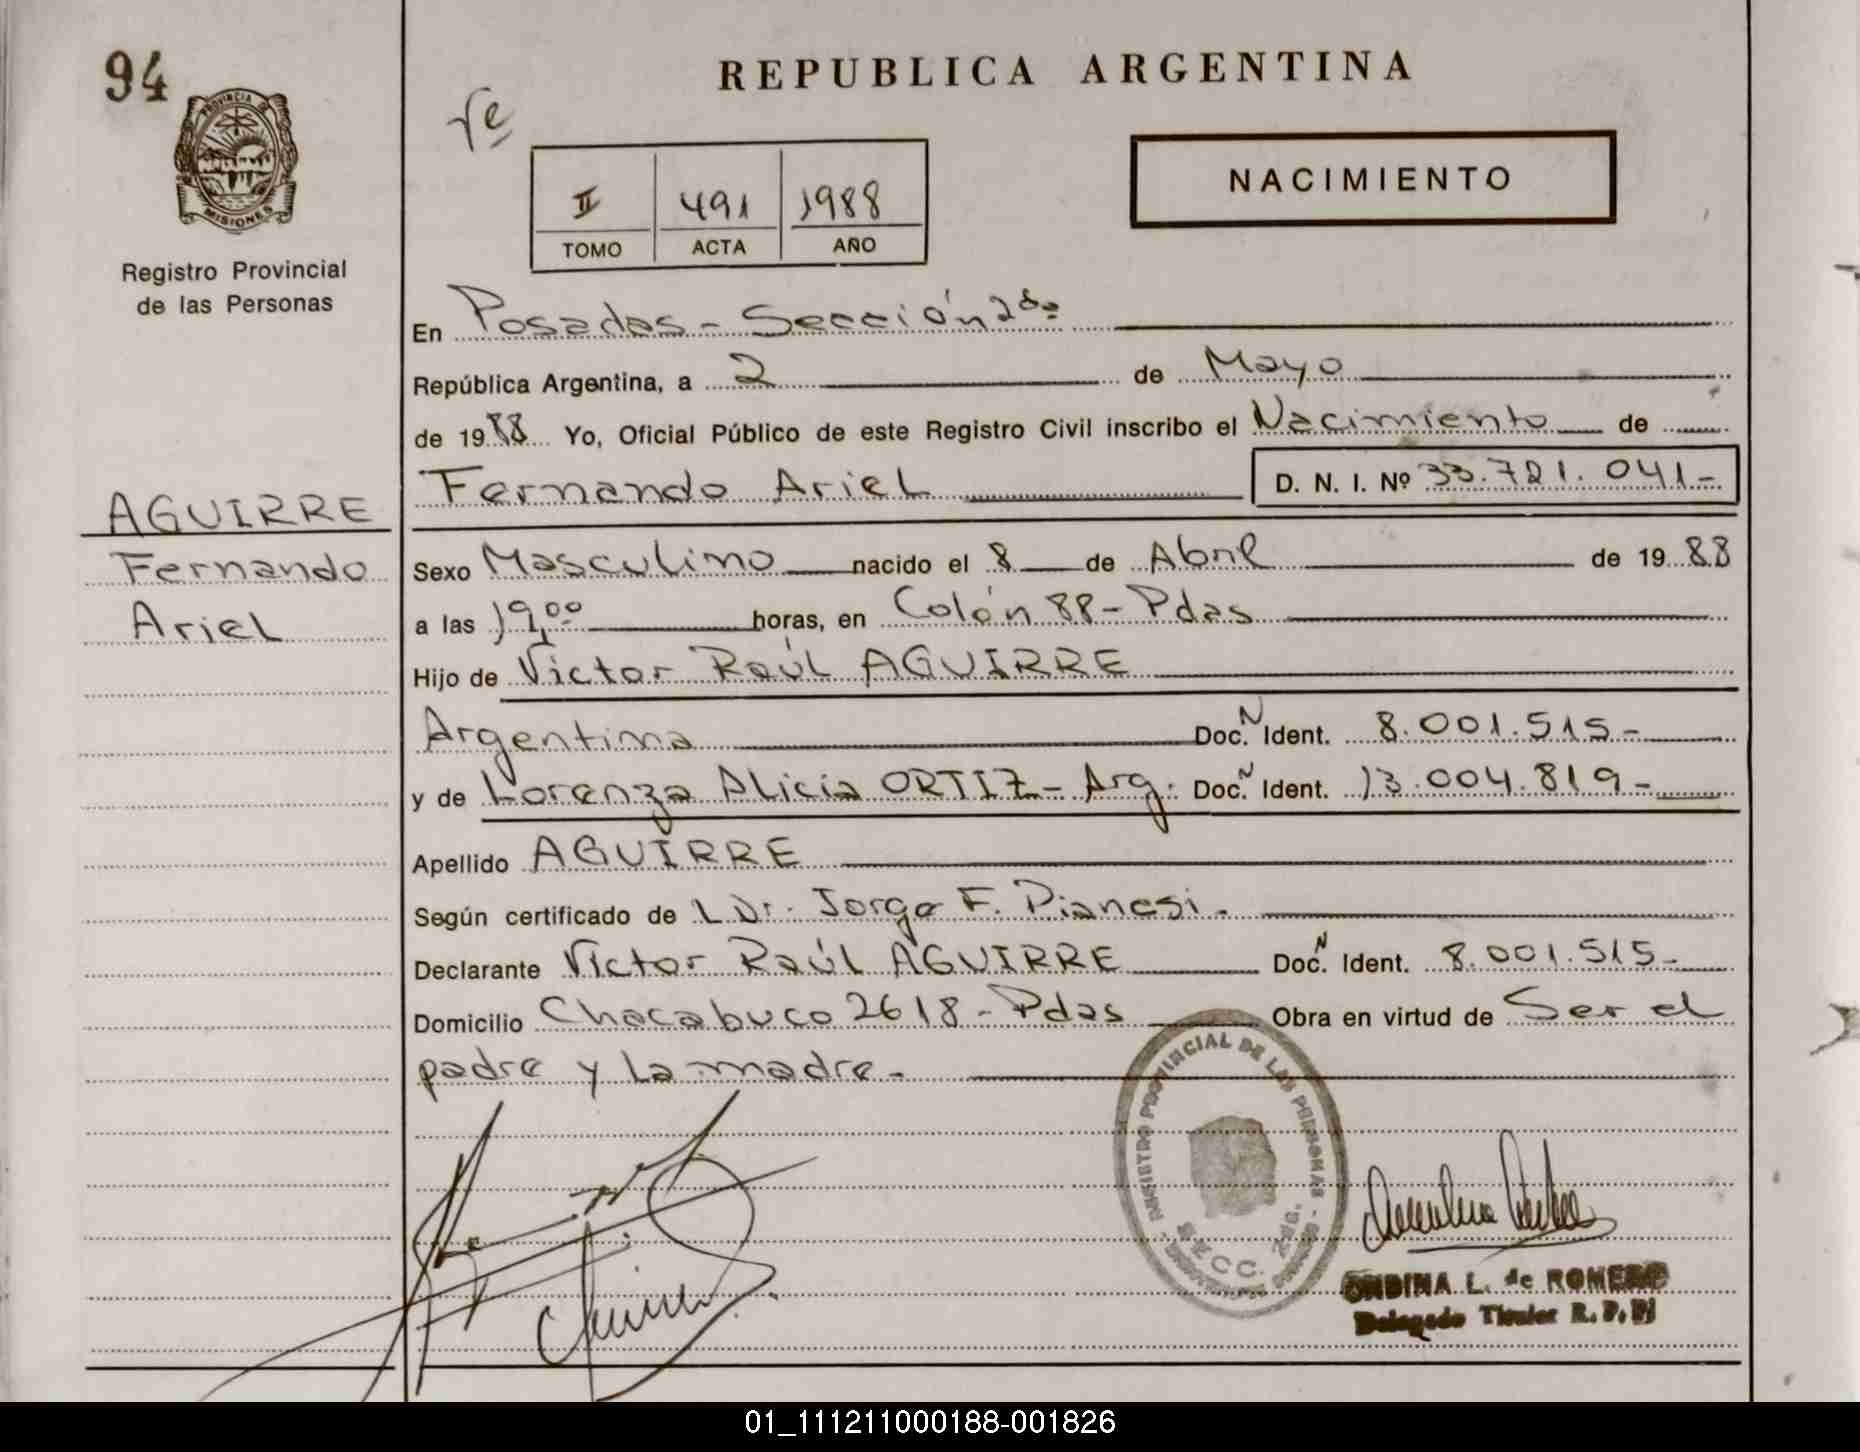 94
PROVINCIA DE
MISIONES
Registro Provincial
de las Personas
AGUIRRE
Fernando
Ariel
REPUBLICA ARGENTINA
NACIMIENTO
II 491 1988
TOMO ACTA AÑO
En Posadas - Sección 2da
República Argentina, a 2 de Mayo
de 1988 Yo, Oficial Público de este Registro Civil inscribo el Nacimiento de
Fernando Ariel D. N. I. Nº 33.721.041-
Sexo Masculino nacido el 8 de Abril de 1988
a las 19,00 horas, en Colón 88 - Pdas
Hijo de Victor Raúl AGUIRRE
Argentina Doc. N Ident. 8.001.515-
y de Lorenza Alicia ORTIZ - Arg. Doc. N Ident. 13.004.819-
Apellido AGUIRRE
Según certificado de Dr. Jorge F. Pianesi.
Declarante Victor Raúl AGUIRRE Doc. N Ident. 8.001.515-
Domicilio Chacabuco 2618 - Pdas Obra en virtud de Ser el
padre y la madre.
REGISTRO PROVINCIAL DE LAS PERSONAS
SECC. 2da.
ONDINA L. de ROMERO
Delegado Titular R. P. P.
01_111211000188-001826